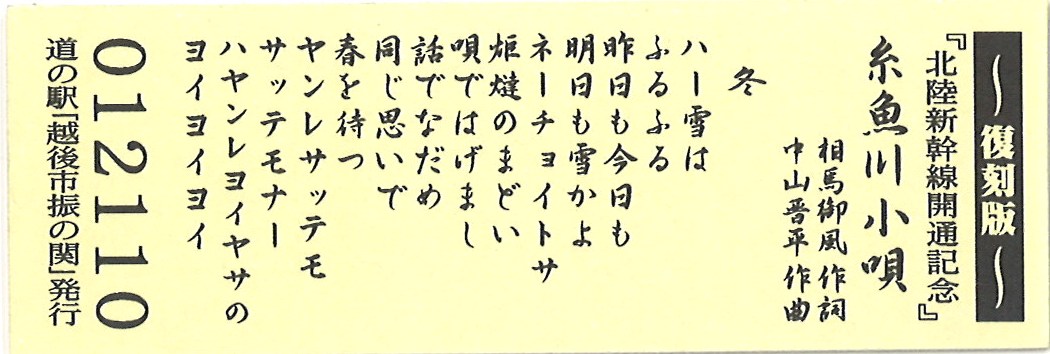 ～復刻版～
『北陸新幹線開通記念』
糸魚川小唄
相馬御風作詞
中山晋平作曲
冬
ハー雪は
ふるふる
昨日も今日も
明日も雪かよ
ネーチョイトサ
炬燵のまどい
唄ではげまし
話でなだめ
同じ思いで
春を待つ
ヤンレサッテモ
サッテモナー
ハヤンレヨイヤサの
ヨイヨイヨイ
012110
道の駅「越後市振の関」発行